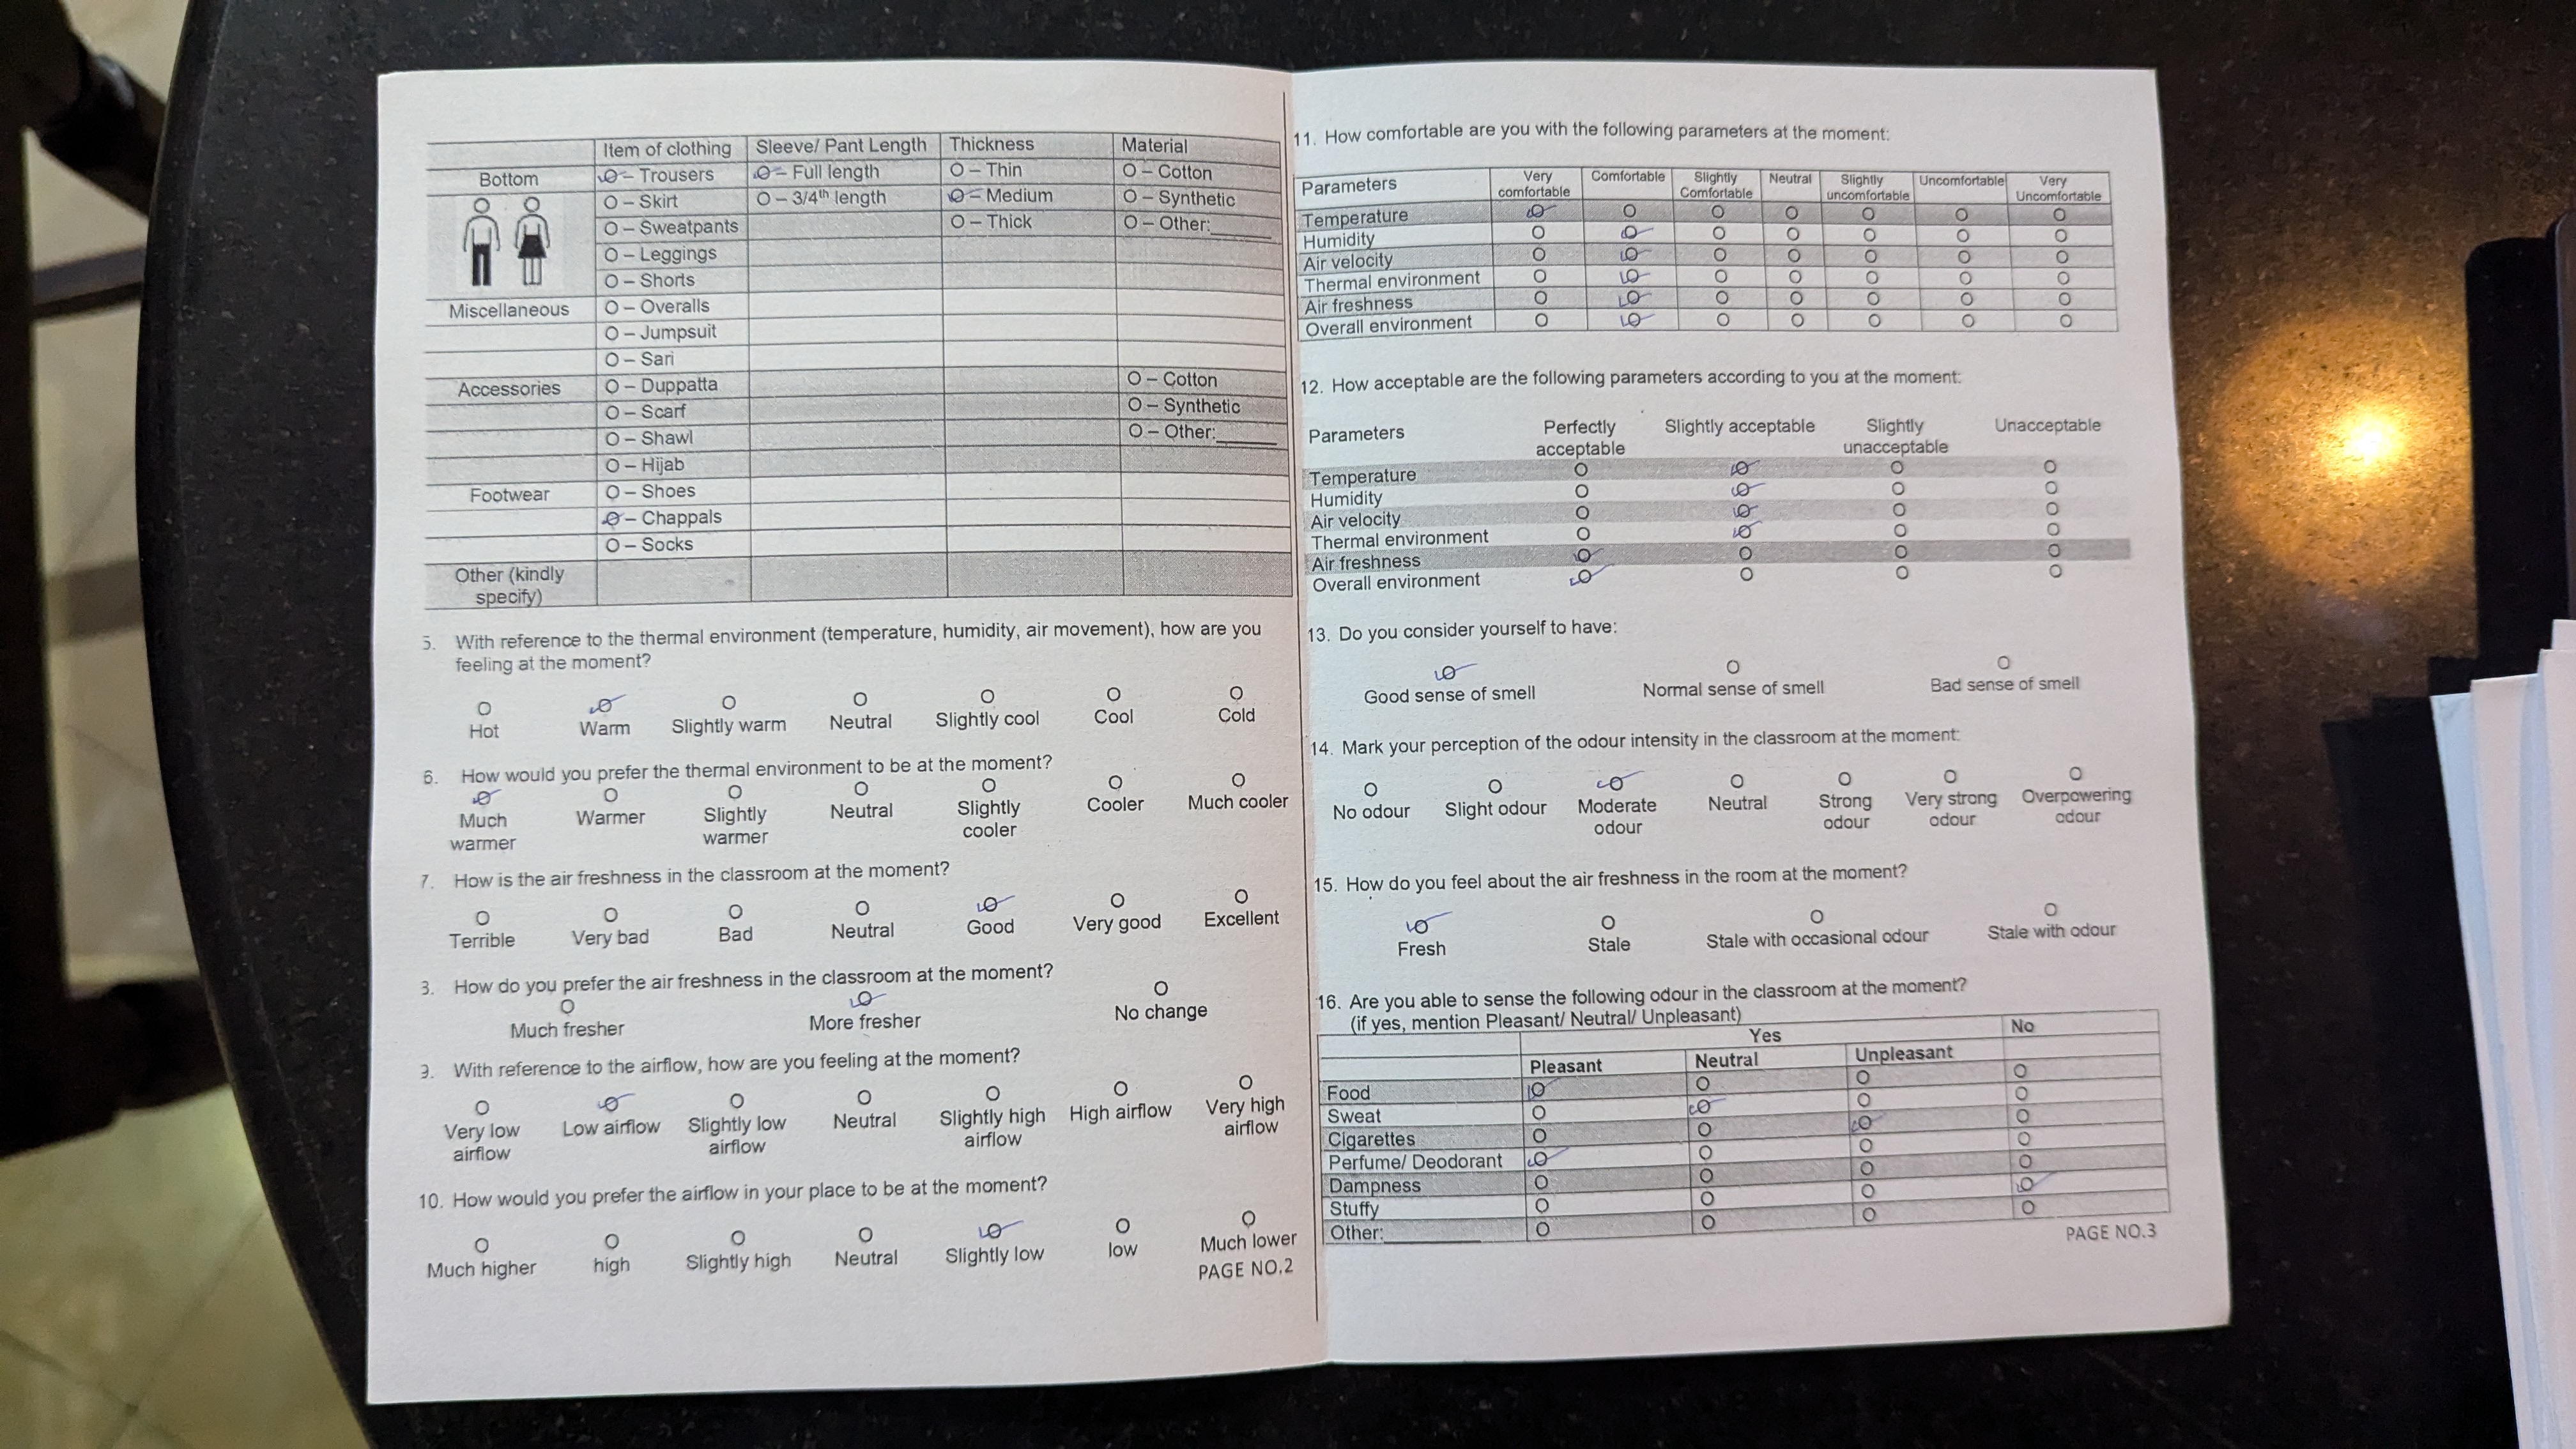 Item of clothing Sleeve/ Pant Length Thickness Material
Bottom O – Trousers O – Full length O – Thin O – Cotton
O – Skirt O – 3/4th length O – Medium O – Synthetic
O – Sweatpants O – Thick O – Other:______
O – Leggings
O – Shorts
Miscellaneous O – Overalls
O – Jumpsuit
O – Sari
Accessories O – Duppatta O – Cotton
O – Scarf O – Synthetic
O – Shawl O – Other:______
O – Hijab
Footwear O – Shoes
O – Chappals
O – Socks
Other (kindly
specify)
5. With reference to the thermal environment (temperature, humidity, air movement), how are you
feeling at the moment?
Hot Warm Slightly warm Neutral Slightly cool Cool Cold
6. How would you prefer the thermal environment to be at the moment?
Much warmer Warmer Slightly warmer Neutral Slightly cooler Cooler Much cooler
7. How is the air freshness in the classroom at the moment?
Terrible Very bad Bad Neutral Good Very good Excellent
3. How do you prefer the air freshness in the classroom at the moment?
Much fresher More fresher No change
9. With reference to the airflow, how are you feeling at the moment?
Very low airflow Low airflow Slightly low airflow Neutral Slightly high airflow High airflow Very high airflow
10. How would you prefer the airflow in your place to be at the moment?
Much higher high Slightly high Neutral Slightly low low Much lower
PAGE NO.2
11. How comfortable are you with the following parameters at the moment:
Parameters Very comfortable Comfortable Slightly Comfortable Neutral Slightly uncomfortable Uncomfortable Very Uncomfortable
Temperature
Humidity
Air velocity
Thermal environment
Air freshness
Overall environment
12. How acceptable are the following parameters according to you at the moment:
Parameters Perfectly acceptable Slightly acceptable Slightly unacceptable Unacceptable
Temperature
Humidity
Air velocity
Thermal environment
Air freshness
Overall environment
13. Do you consider yourself to have:
Good sense of smell Normal sense of smell Bad sense of smell
14. Mark your perception of the odour intensity in the classroom at the moment:
No odour Slight odour Moderate odour Neutral Strong odour Very strong odour Overpowering odour
15. How do you feel about the air freshness in the room at the moment?
Fresh Stale Stale with occasional odour Stale with odour
16. Are you able to sense the following odour in the classroom at the moment?
(if yes, mention Pleasant/ Neutral/ Unpleasant)
Yes No
Pleasant Neutral Unpleasant
Food
Sweat
Cigarettes
Perfume/ Deodorant
Dampness
Stuffy
Other:__________
PAGE NO.3